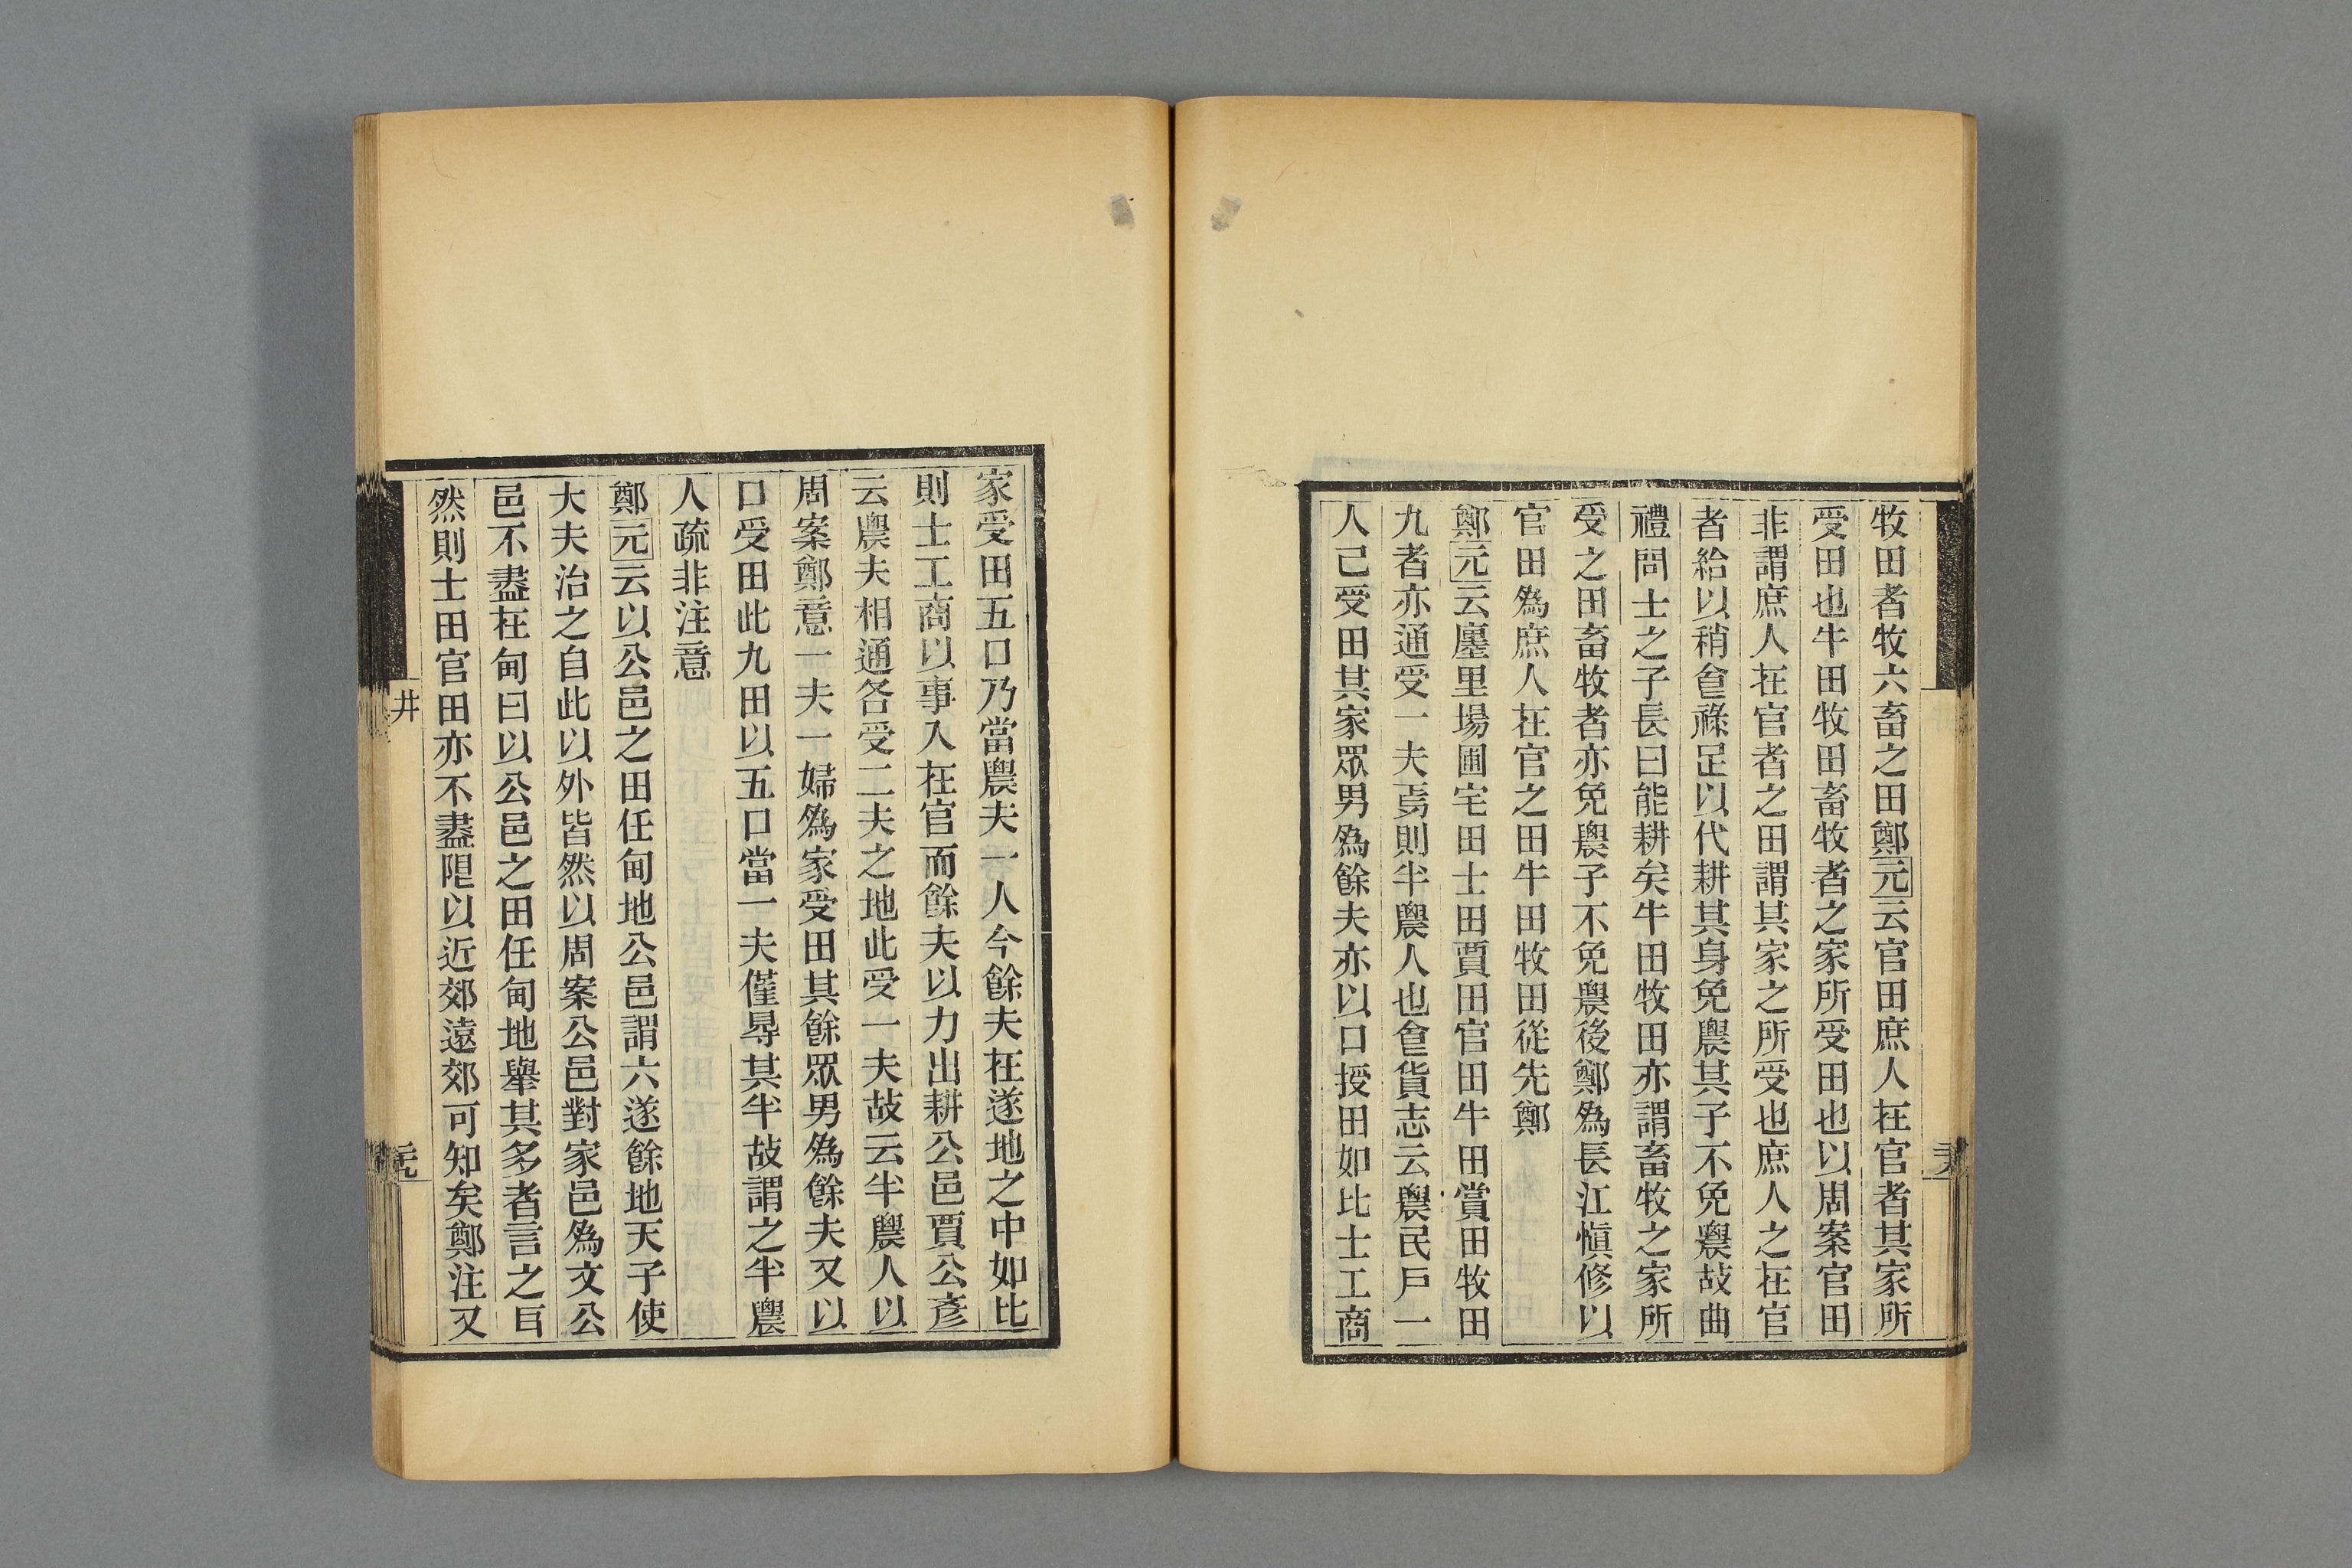 牧田者牧六畜之田鄭元云官田庶人在官者其家所
受田也牛田牧田畜牧者之家所受田也以周案官田
非謂庶人在官者之田謂其家之所受也庶人之在官
者給以稍食祿足以代耕其身免農其子不免農故曲
禮問士之子長曰能耕矣牛田牧田亦謂畜牧之家所
受之田畜牧者亦免農子不免農後鄭為長江愼修以
官田為庶人在官之田牛田牧田從先鄭
鄭元云廛里場圃宅田士田賈田官田牛田賞田牧田
九者亦通受一夫焉則半農人也食貨志云農民戶一
人己受田其家眾男為餘夫亦以口授田如比士工商
家受田五口乃當農夫一人今餘夫在遂地之中如比
則士工商以事入在官而餘夫以力出耕公邑賈公彥
云農夫相通各受二夫之地此受一夫故云半農人以
周案鄭意一夫一婦為家受田其餘眾男為餘夫又以
口受田此九田以五口當一夫僅得其半故謂之半農
人疏非注意
鄭元云以公邑之田任甸地公邑謂六遂餘地天子使
大夫治之自此以外皆然以周案公邑對家邑為文公
邑不盡在甸曰以公邑之田任甸地舉其多者言之且
然則士田官田亦不盡限以近郊遠郊可知矣鄭注又
井